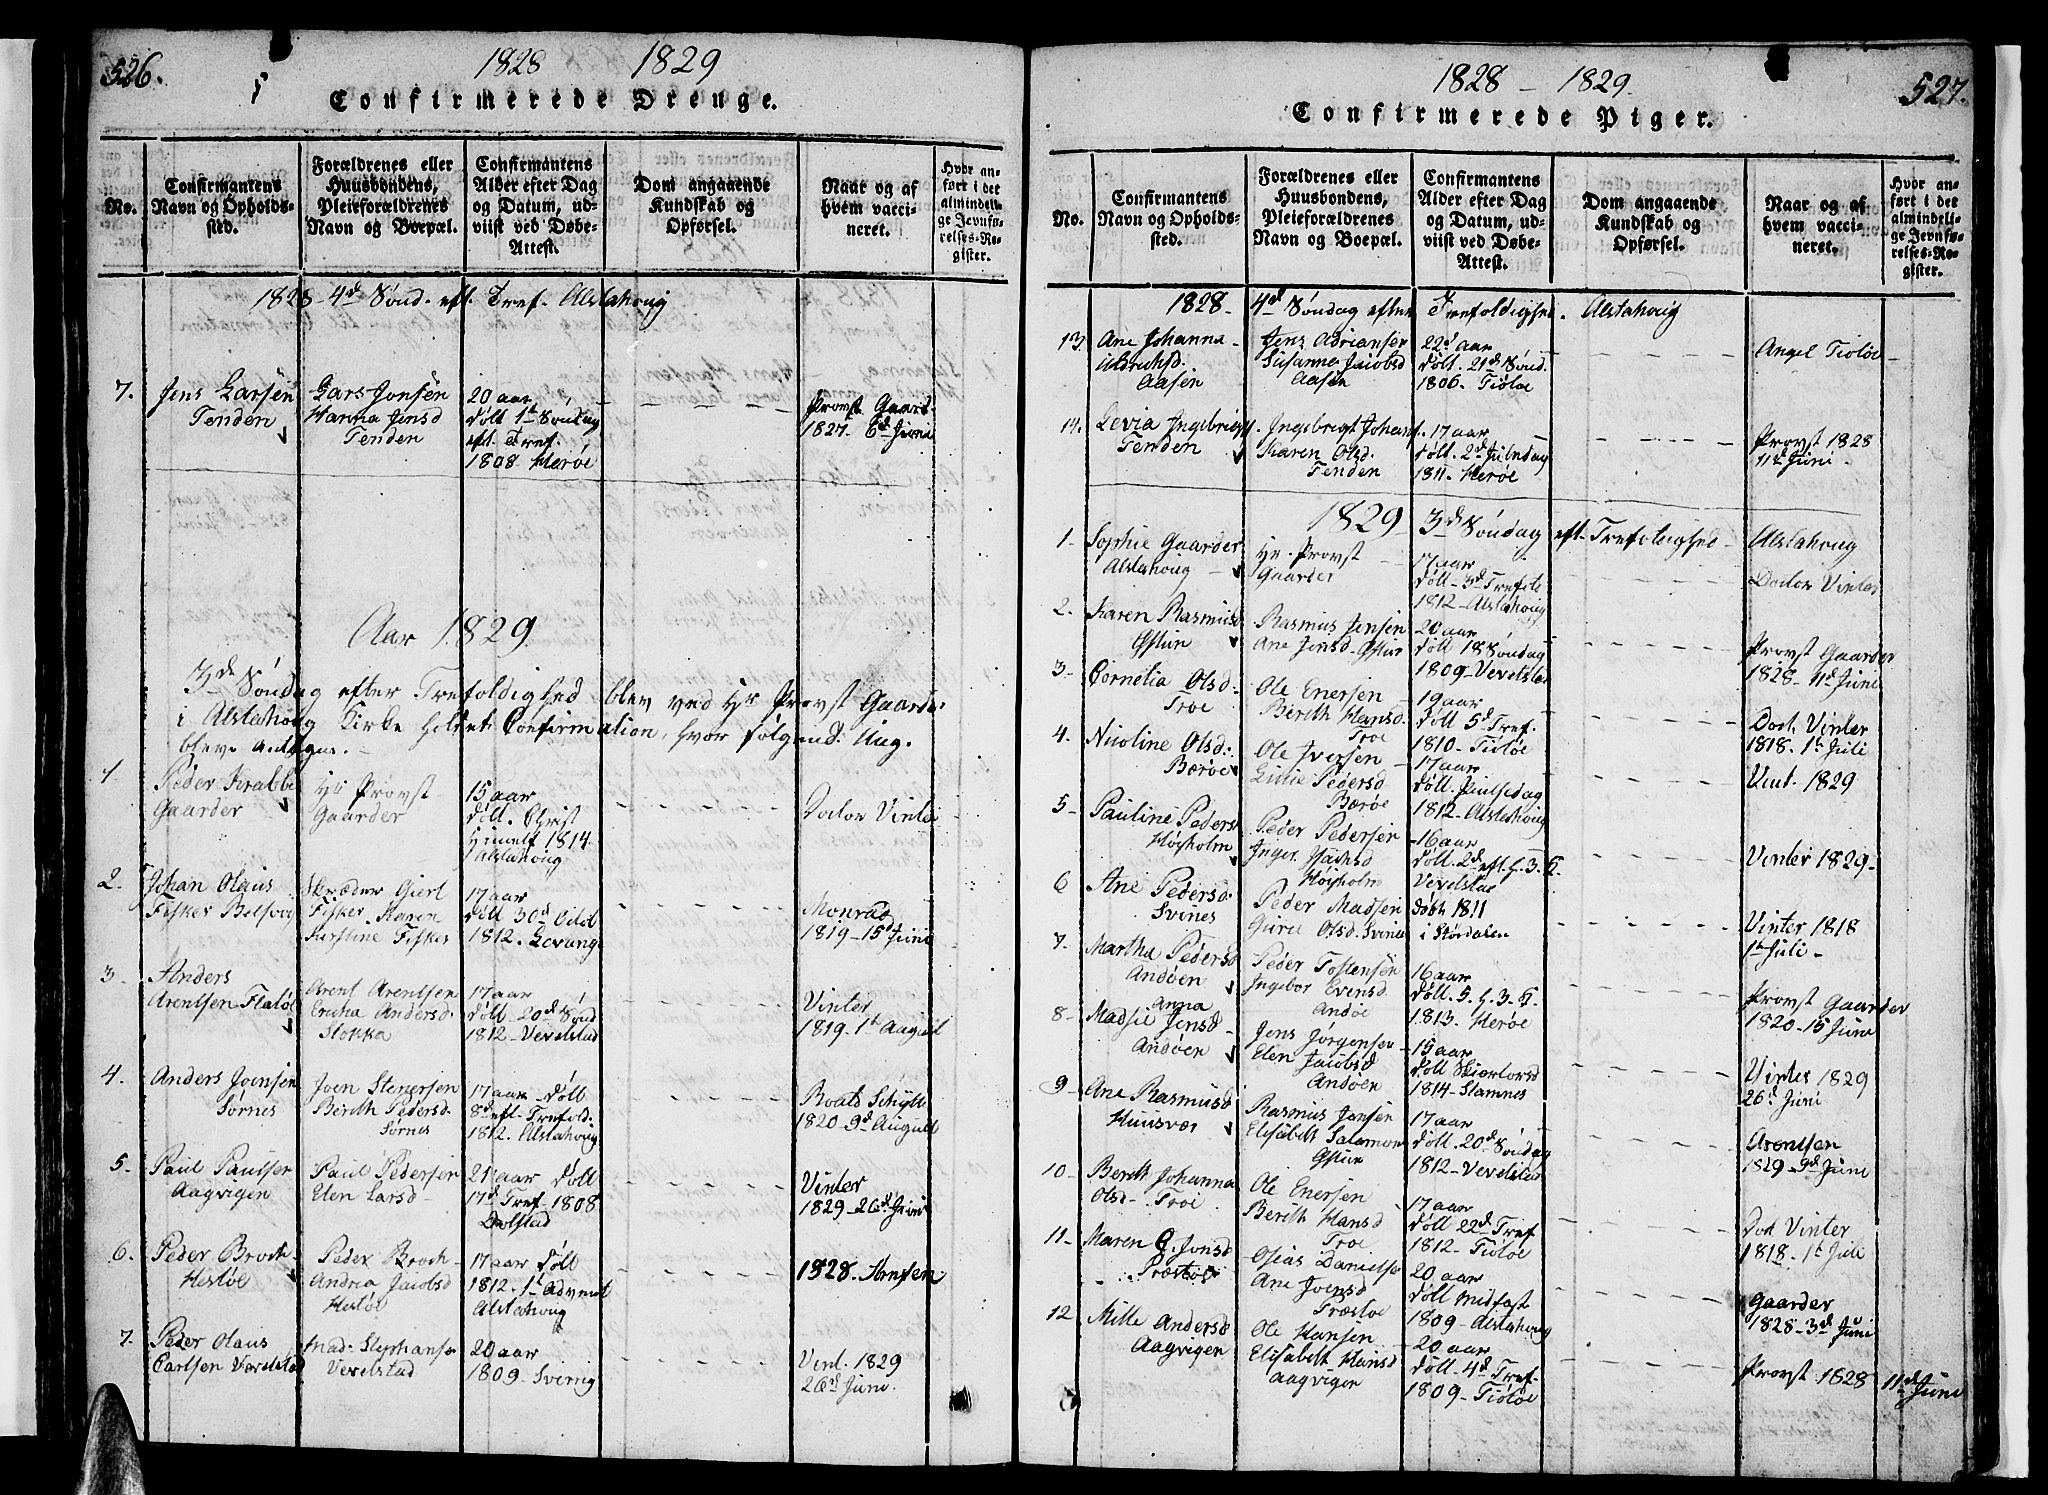 526.
1828 1829
Confirmerede Drenge.
No.
Confirmantens
Navn og Opholds-
sted.
Forældrenes eller
Huusbondens,
Pleieforældrenes
Navn og Boepæl.
Confirmantens
Alder efter Dag
og Datum, ud-
viist ved Døbe-
Attest.
Dom angaaende
Kundskab og
Opførsel.
Naar og af
hvem vacci-
neret.
Hvor an-
ført i det
almindeli-
ge Jevnfø-
relses-Re-
gister.
1828 - 4d Sønd. eft. Tref. Alstahoug
7. Jens Larsen
Tenden
Lars Jonsen
Hanna Jensd
Tenden
20 aar
døbt 1t Søndag
eft. Tref.
1808. Herøe
Provst Gaard-
1827. 6d Juni
Aar 1829.
3de Søndag efter Trefoldighed blev ved Hr Provst Gaarder
i Alstahoug Kirke holdt Confirmation, hvor følgend: Ung.
bleve antagne.
1 Peder Krabbe
Gaarder
Hr Provst
Gaarder
15 aar
døbt. Christ
Himelf 1814.
Alstahoug
Doctor Vinter
2. Johan Olaus
Fisker Belsvog
Skræder Giert
Fisker Karen
Kirstine Fisker
17 aar
døbt 30d Octob
1812. Levang
Monrad
1819 - 15d Juni
3. Anders
Arentsen Flatøe
Arent Arentsen
Ericha Andersd.
Stokka
17 aar
døbt 20d Sønd
1812 - Vevelstad
Vinter
1819. 1t August
4. Anders Joensen
Sørnes
Joen Stenersen
Berith Pedersd.
Sørnes
17 aar døbt
8d eft. Trefold:
1812. Alstahoug
Roald Schytt
1820 - 9d August
5. Paul Paulsen
Aagvigen
Paul Pedersen
Elen Larsd
21 aar døbt
17d Tref. 1808
Dolstad
Vinter
1829 - 26d Juni
6. Peder Broch
Hestøe
Peder Broch
Andrea Jacobsd
Hestøe
17 aar døbt
1812. 1t Advent
Alstahoug
1828. Arntsen
7. Peder Olaus
Carlsen Vevelstad
Mad. Stephansen
Vevelstad
20 aar
1809. Sverrig
Vint. 1829
26d Juni.
527.
1828 - 1829.
Confirmerede Piger.
No.
Confirmantens
Navn og Opholds-
sted.
Forældrenes eller
Huusbondens,
Pleieforældrenes
Navn og Boepæl.
Confirmantens
Alder efter Dag
og Datum, ud-
viist ved Døbe-
Attest.
Dom angaaende
Kundskab og
Opførsel.
Naar og af
hvem vacci-
neret.
Hvor an-
ført i det
almindeli-
ge Jevnfø-
relses-Re-
gister.
1828. 4d Søndag efter Trefoldighed. Alstahoug
13. Ane Johanna
Aasen
Jens Adriansen
Susanna Jacobsd
Aasen
22d aar
døbt. 21d Sønd.
1806. Tiøtøe
Angel Tiøtøe
14. Levia Ingebrigtsd.
Tenden
Ingebrigt Johans.
Karen Olsd.
Tenden
17 aar
døbt. 2d Juledag
1811. Herøe
Provst 1828
11d Juni
1829 3d Søndag eft. Trefoldighed - Alstahoug
1 Sophie Gaarder
Alstahoug
Hr. Provst
Gaarder
17 aar
døbt - 3d Trefold
1812 - Alstahoug
Doctor Vinter
2. Karen Rasmusd
Gistun
Rasmus Jensen
Ane Jensd - Gistun
20 aar
døbt 18 Søndag
1809 - Vevelstad
Provst Gaarder
1828 - 11d Juni
3. Cornelia Olsd:
Troe
Ole Enersen
Berith Hansd.
Troe
19 aar
døbt 5d Tref.
1810 - Tiøtøe
Doct. Vinter
1818. 1t Juli
4. Nicoline Olsd:
Bærøe
Ole Iversen
Pedersd
Bærøe
17 aar
døbt. Pintsedag
1812 - Alstahoug
Vint. 1829
5 Pauline Pedersd
Høiholm
Peder Pedersen
Inger Isachsd
Høiholm
16 aar
døbt. 2d eft. H. 3. K.
Vevelstad
Vinter 1829
6 Ane Pedersd
Svines
Peder Madsen
Guru Olsd. Svines
døbt 1811
i Størdalen
Vinter 1818
1t Juli
7. Martha Pedersd
Andøen
Peder Tostensen
Ingebor Evensd
Andøe
16 aar
døbt. 5. H. 3. K.
1813. Herøe
Provst Gaarder
1820 - 15 Juni
8 Anna
Madsie Jensd
Andøen
Jens Jørgensen
Elen Jacobsd
Andøen
15 aar
døbt Skiærtorsd
1814 - Stamnes
Vinter 1829
26d Juni
9 Ane Rasmusd
Huusvær
Rasmus Jensen
Elisabeth Salamon
Gistun
17 aar
døbt. 20d Søndag
1812 - Vevelstad
Arentsen
1829 - 9d Juni
10 Berith Johanna
Olsd - Troe
Ole Enersen
Berith Hansd
Troe
17 aar
døbt 22d Tref
1812 - Tiøtøe
Doct Vinter
1818. 1t Juli
11 Maren C. Jonsd
Præstøe
Osias Danielsen
Ane Joensd
Præstøe
20 aar
døbt Midfast
1809 - Alstahoug
Gaarder
1828 - 3d Juni
12 Mille Andersd
Aagvigen
Ole Hansen
Elisabeth Hansd
Aagvigen
20 aar
døbt. 4d Tref.
1809 - Tiøtøe
Provst 1828 11d Juni